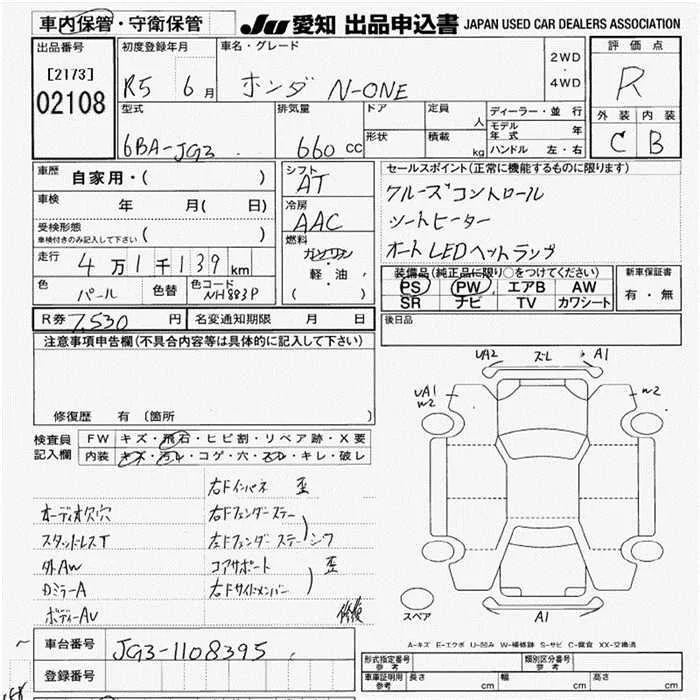 車内保管・守衛保管 JU 愛知 出品申込書 JAPAN USED CAR DEALERS ASSOCIATION
出品番号 初度登録年月 車名・グレード 2WD ・ 4WD 評価点
[2173] 02108 R5 6月 ホンダ N-ONE R
型式 排気量 ドア 定員 人 ディーラー・並行 外装 内装
6BA-JG3 660 cc 形状 積載 kg モデル年式 年 C B
ハンドル 左・右
車歴 自家用・( ) シフト AT セールスポイント(正常に機能するものに限ります)
車検 年 月( 日) 冷房 AAC クルーズコントロール
受検形態 車検付きのみ記入して下さい ( ) シートヒーター
走行 4万1千139km 燃料 ガソリン オートLEDヘッドランプ
軽・油 ( )
色 パール 色替 色コード NH883P
装備品(純正品に限り○をつけてください) 新車保証書
PS PW エアB AW 有・無
SR ナビ TV カワシート
R券 7,530円 名変通知期限 月 日 後日品
注意事項申告欄(不具合内容等は具体的に記入して下さい)
修復歴 有 〔箇所
検査員記入欄 FW キズ・飛石・ヒビ割・リペア跡・X要
内装 キズ・汚レ・コゲ・穴・スレ・キレ・破レ
UA2 ズレ A1
UA1 W2 W2
右Fインパネ 歪
オーディオ欠穴 右Fフェンダーステー
スタッドレスT 左Fフェンダーステーシワ
外AW コアサポート 歪
DミラーA 右Fサイドメンバー
ボディーAU 修復
スペア A1
車台番号 JG3-1108395
登録番号
A-キズ E-エクボ U-凹み W-補修跡 S-サビ C-腐食 XX-交換済
形式指定番号 参考 類別区分番号 参考
車庫証明用 参考 長さ cm 幅 cm 高さ cm